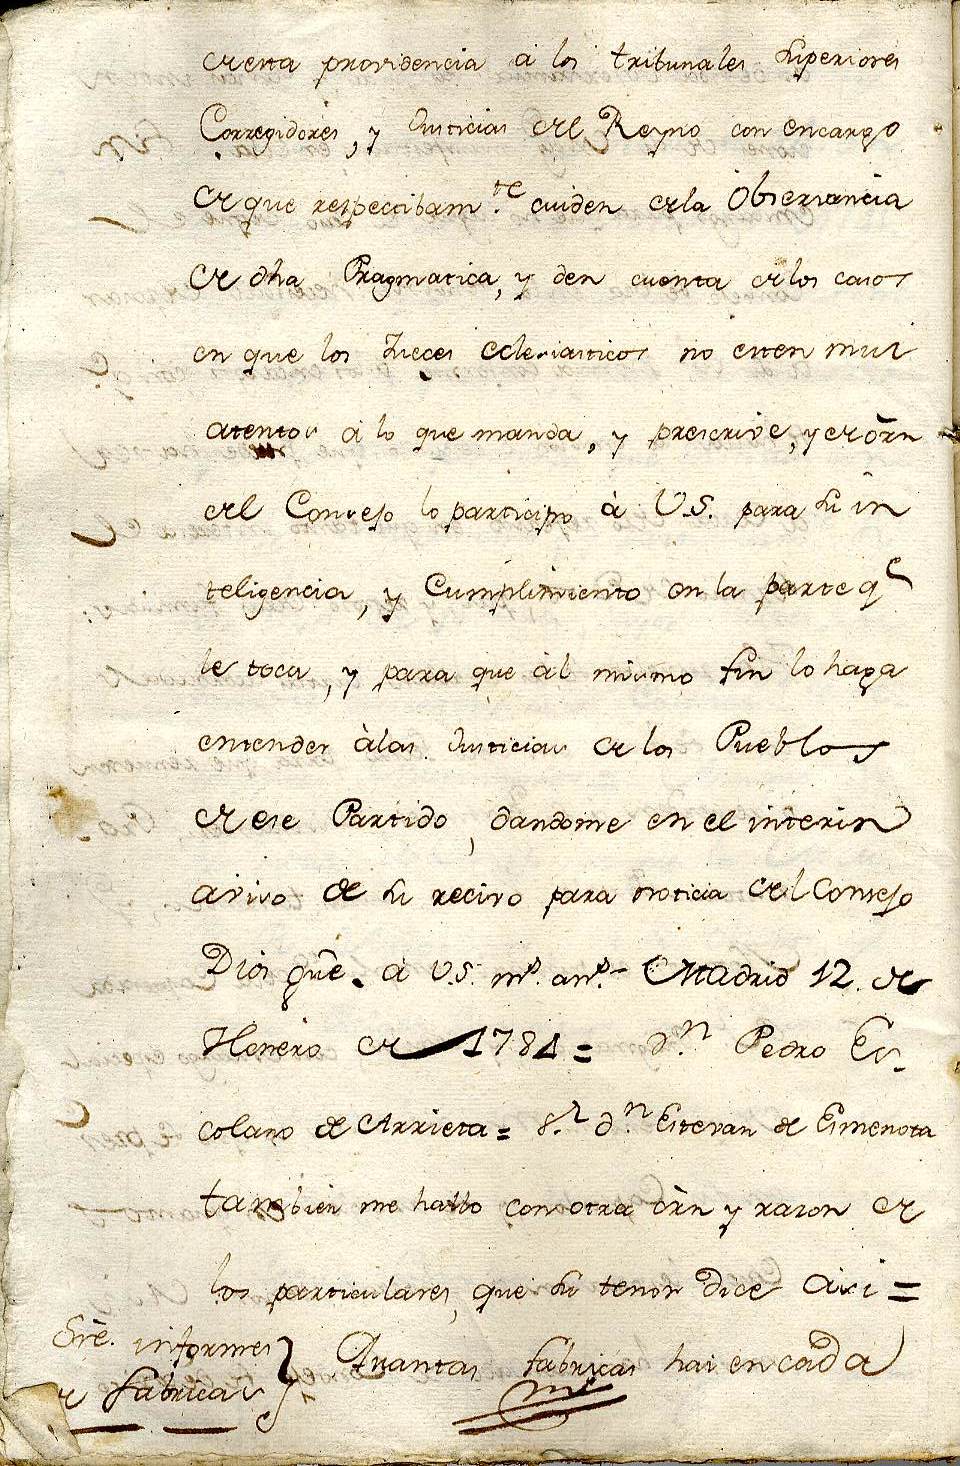 de esta providencia à los tribunales superiores
Corregidores, y Justicias del Reyno con encargo
de que respectibam.te cuiden de la Observancia
de dha Pragmatica, y den cuenta de los casos
en que los Jueces eclesiasticos no esten mui
atentos à lo que manda, y prescrive, y de òrn
del Consejo lo participo à V.S. para su in
teligencia, y Cumplimiento en la parte q.e
le toca, y para que àl mismo fin lo haga
entender àlas Justicias de los Pueblos
de ese Partido, dandome en el interin
aviso de su recivo para noticia del Consejo
Dios güe. à V.S. m.s an.s Madrid 12. de
Henero de 1784 = D.n Pedro Es-
colano de Arrieta = S.r d.n Estevan de Esmenota
tambien me hallo con otra òrn y razon de
los particulares, que su tenor dice asi =
Sre. informes
de fabricas
Quantas fabricas hai en cada